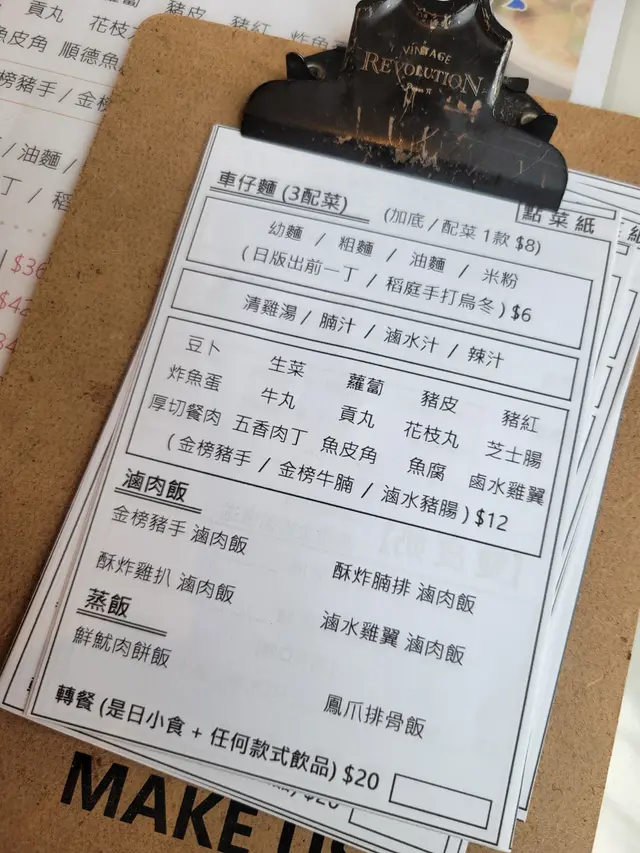 貢丸 花枝丸
魚皮角 順德魚
金榜豬手 / 金榜
/ 油麵 /
丁 / 稻
$36
$42
VINTAGE
REVOLUTION
點菜紙
車仔麵 (3配菜) (加底 / 配菜 1款 $8)
幼麵 / 粗麵 / 油麵 / 米粉
(日版出前一丁 / 稻庭手打烏冬) $6
清雞湯 / 腩汁 / 滷水汁 / 辣汁
豆卜 生菜 蘿蔔 豬皮 豬紅
炸魚蛋 牛丸 貢丸 花枝丸 芝士腸
厚切餐肉 五香肉丁 魚皮角 魚腐 鹵水雞翼
(金榜豬手 / 金榜牛腩 / 滷水豬腸) $12
滷肉飯
金榜豬手 滷肉飯 酥炸腩排 滷肉飯
酥炸雞扒 滷肉飯 滷水雞翼 滷肉飯
蒸飯
鮮魷肉餅飯 鳳爪排骨飯
轉餐 (是日小食 + 任何款式飲品) $20
MAKE